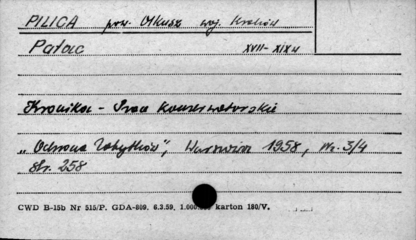 PILICA pow. Olkusz woj. Kraków
Pałac XVII-XIX w
Kronika - Prace konserwatorskie
„Ochrona Zabytków", Warszawa 1958, Nr. 3/4
str. 258
CWD B-15b Nr 515/P. GDA-809. 6.2.59. 1.000 karton 180/V.